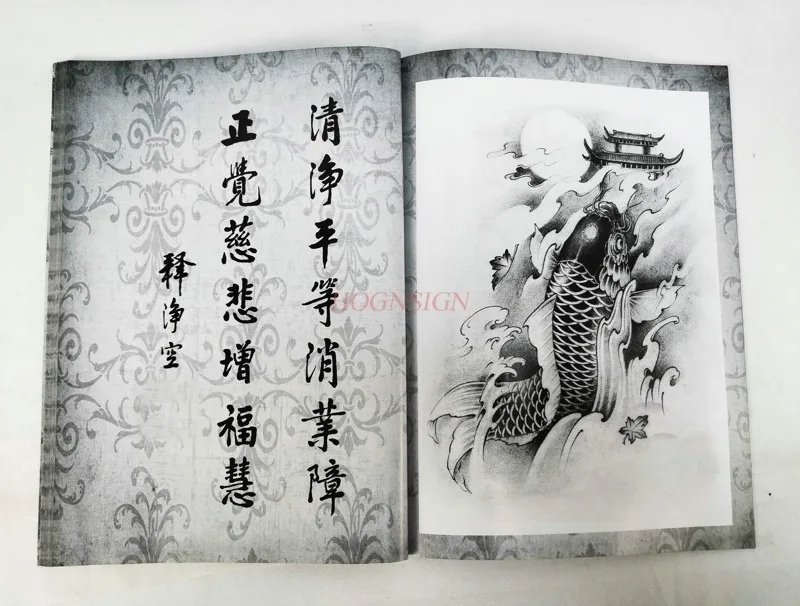 清淨平等消業障
正覺慈悲增福慧
释净空
HOGNSIGN